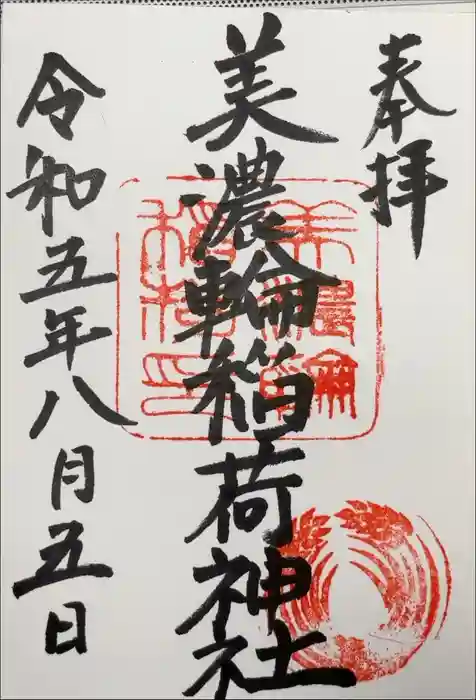 奉拝
美濃輪稲荷神社
令和五年八月五日